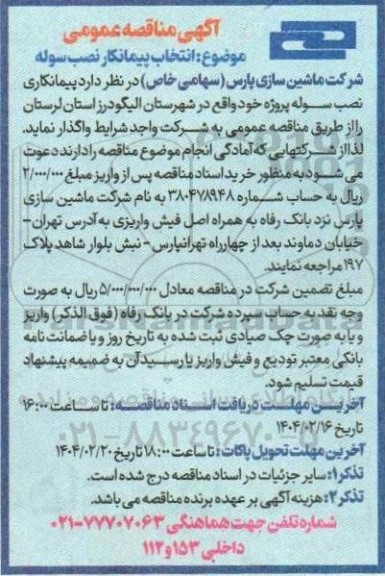 آگهی مناقصه عمومی
موضوع: انتخاب پیمانکار نصب سوله
شرکت ماشین سازی پارس (سهامی خاص) در نظر دارد پیمانکاری
نصب سوله پروژه خود واقع در شهرستان الیگودرز استان لرستان
را از طریق مناقصه عمومی به شرکت واجد شرایط واگذار نماید.
لذا از شرکتهایی که آمادگی انجام موضوع مناقصه را دارند دعوت
می شود به منظور خرید اسناد مناقصه پس از واریز مبلغ ۲/۰۰۰/۰۰۰
ریال به حساب شماره ۳۸۰۴۷۸۹۴۸ به نام شرکت ماشین سازی
پارس نزد بانک رفاه به همراه اصل فیش واریزی به آدرس تهران-
خیابان دماوند بعد از چهارراه تهرانپارس - نبش بلوار شاهد پلاک
۱۹۷ مراجعه نمایند.
مبلغ تضمین شرکت در مناقصه معادل ۵/۰۰۰/۰۰۰/۰۰۰ ریال به صورت
وجه نقد به حساب سپرده شرکت در بانک رفاه (فوق الذکر) واریز
و یا به صورت چک صیادی ثبت شده به تاریخ روز و یا ضمانت نامه
بانکی معتبر تودیع و فیش واریز یا رسید آن به ضمیمه پیشنهاد
قیمت تسلیم شود.
آخرین مهلت دریافت اسناد مناقصه: تا ساعت ۱۶:۰۰
تاریخ ۱۴۰۴/۰۲/۱۶
آخرین مهلت تحویل پاکات: تا ساعت ۱۸:۰۰ تاریخ ۱۴۰۴/۰۲/۲۰
تذکر۱: سایر جزئیات در اسناد مناقصه درج شده است.
تذکر۲: هزینه آگهی بر عهده برنده مناقصه می باشد.
شماره تلفن جهت هماهنگی ۷۷۷۰۷۰۶۳-۰۲۱
داخلی ۱۵۳ و ۱۱۲
۰۲۱-۸۸۳۴۹۶۷۰-۵